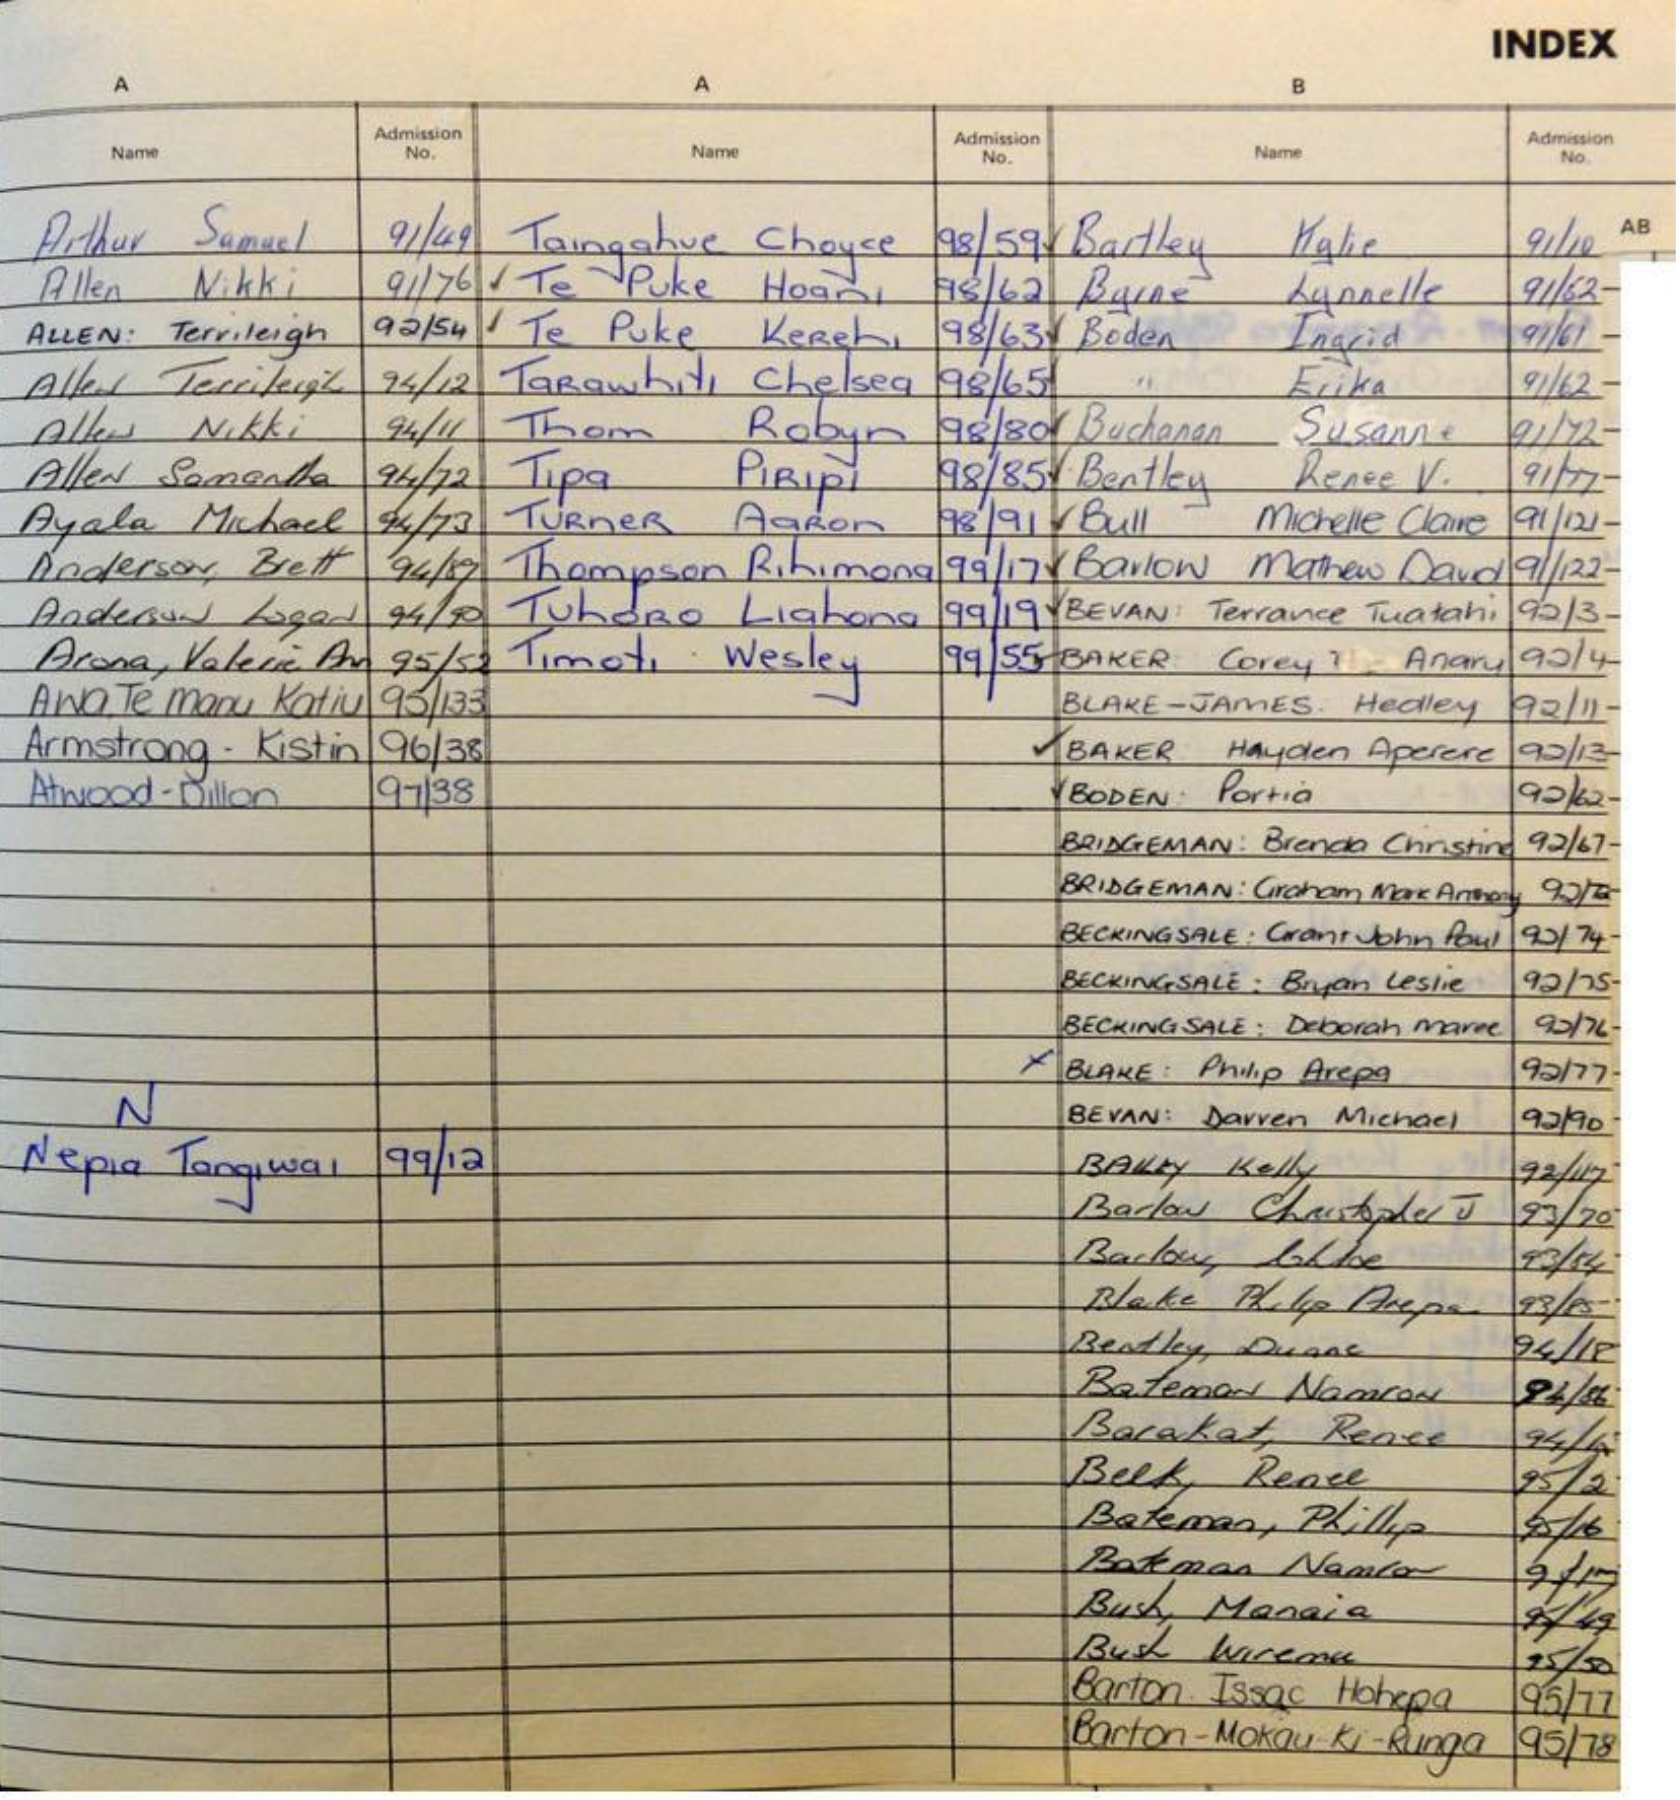 INDEX
A A B
Name Admission No. Name Admission No. Name Admission No.
AB
Arthur Samuel 91/49
Allen Nikki 91/76
ALLEN: Terrileigh 92/54
Allen Terrileigh 94/12
Allen Nikki 94/11
Allen Samantha 94/72
Ayala Michael 94/73
Anderson, Brett 94/89
Anderson Logan 94/90
Arona, Valerie An 95/52
Awa Te Manu Katiu 95/133
Armstrong - Kistin 96/38
Atwood - Dillon 97/38
N
Nepia Tangiwai 99/12
Taingahue Choyce 98/59
Te Puke Hoani 98/62
Te Puke Kerehi 98/63
Tarawhiti Chelsea 98/65
Thom Robyn 98/80
Tipa Piripi 98/85
Turner Aaron 98/91
Thompson Rihimona 99/17
Tuhoro Liahona 99/19
Timoti Wesley 99/55
Bartley Kylie 91/10
Byrne Lynnelle 91/52
Boden Ingrid 91/61
" Erika 91/62
Buchanan Susanne 91/72
Bentley Renee V. 91/77
Bull Michelle Claire 91/121
Barlow Mathew David 91/122
BEVAN: Terrance Tuatahi 92/3
BAKER Corey Anary 92/4
BLAKE-JAMES: Hedley 92/11
BAKER Hayden Aperere 92/13
BODEN: Portia 92/62
BRIDGEMAN: Brenda Christine 92/67
BRIDGEMAN: Graham Mark Anthony
BECKINGSALE: Grant John Paul 92/74
BECKINGSALE: Bryan Leslie 92/75
BECKINGSALE: Deborah Maree 92/76
BLAKE: Philip Arepa 92/77
BEVAN: Darren Michael 92/90
BAILEY Kelly 92/117
Barlow Christopher J 93/70
Barlow, Chloe 93/84
Blake Philip Arepa 93/85
Bentley, Duane 94/18
Bateman Namron 94/86
Barakat, Renee
Belk, Renee 95/2
Bateman, Phillip 95/16
Bateman Namron
Bush, Manaia 95/49
Bush Wiremu 95/50
Barton Issac Hohepa 95/77
Barton - Mokau-Ki-Runga 95/78